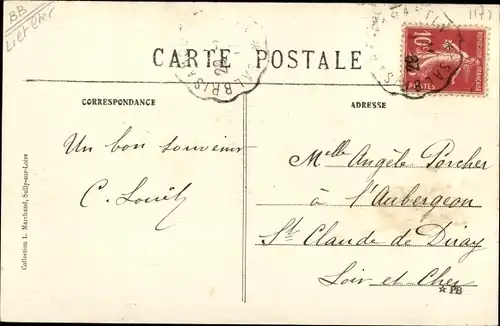 BB
Li et Cher
1171
CARTE POSTALE
SALBRIS
SALBRIS
20
28
10
REPUBLIQUE FRANCAISE
POSTES
CORRESPONDANCE
ADRESSE
Un bon souvenir
C. Louët
Melle Angèle Porcher
à l'Aubergeon
St Claude de Diray
Loir et Cher
☆ PB
Collection L. Marchand, Sully-sur-Loire